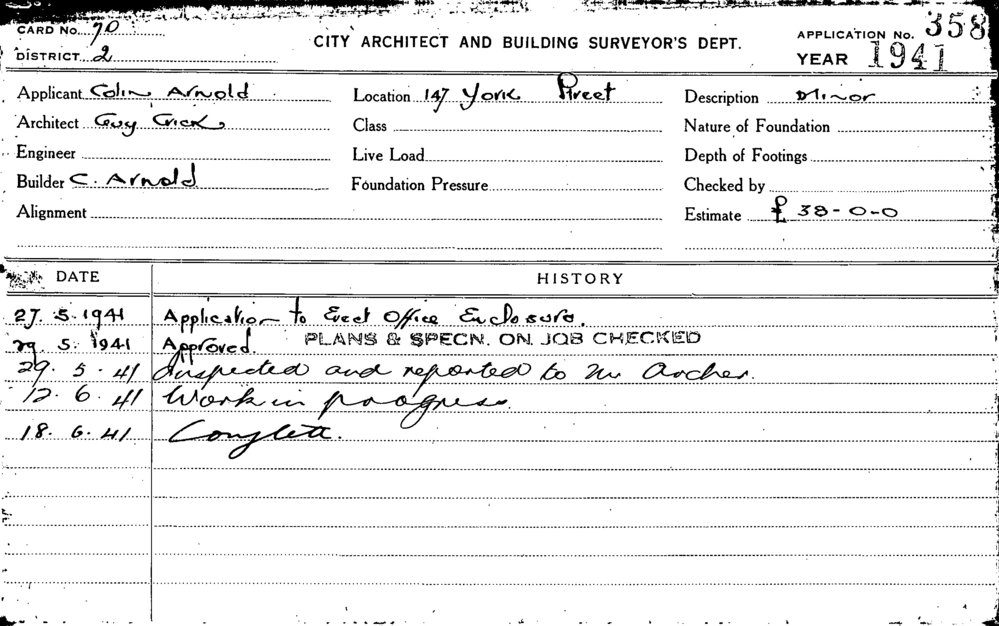 CARD No. 70
CITY ARCHITECT AND BUILDING SURVEYOR'S DEPT.
APPLICATION No. 358
DISTRICT 2
YEAR 1941
Applicant Colin Arnold Location 147 York Street Description Minor
Architect Guy Crick Class Nature of Foundation
Engineer Live Load Depth of Footings
Builder C. Arnold Foundation Pressure Checked by
Alignment Estimate £ 38-0-0
DATE HISTORY
27.5.1941 Application to Erect Office Enclosure.
29.5.1941 Approved. PLANS & SPECN. ON JOB CHECKED
29.5.41 Inspected and reported to Mr Archer.
12.6.41 Work in progress.
18.6.41 Complete.